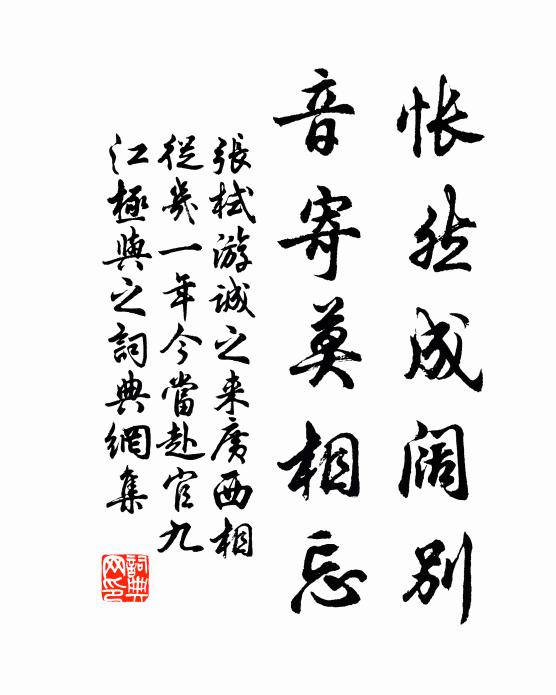 怅然成阔别
音寄莫相忘
張栻游誠之来廣西相
從幾一年今當赴官九
江極與之詞典網集
詞典
网印